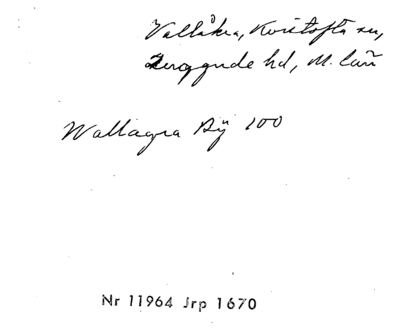 Vallåkra, Kvistofta sn,
Luggude hd, M. län
Wallagra Bÿ 100
Nr 11964 Jrp 1670